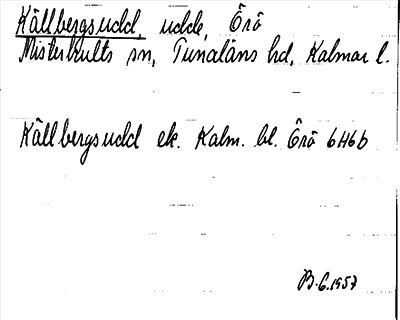 Källbergsudd, udde, Örö
Misterhults sn, Tunaläns hd, Kalmar l.
Källbergsudd ek. Kalm. bl. Örö 6H6b
B.G.1957